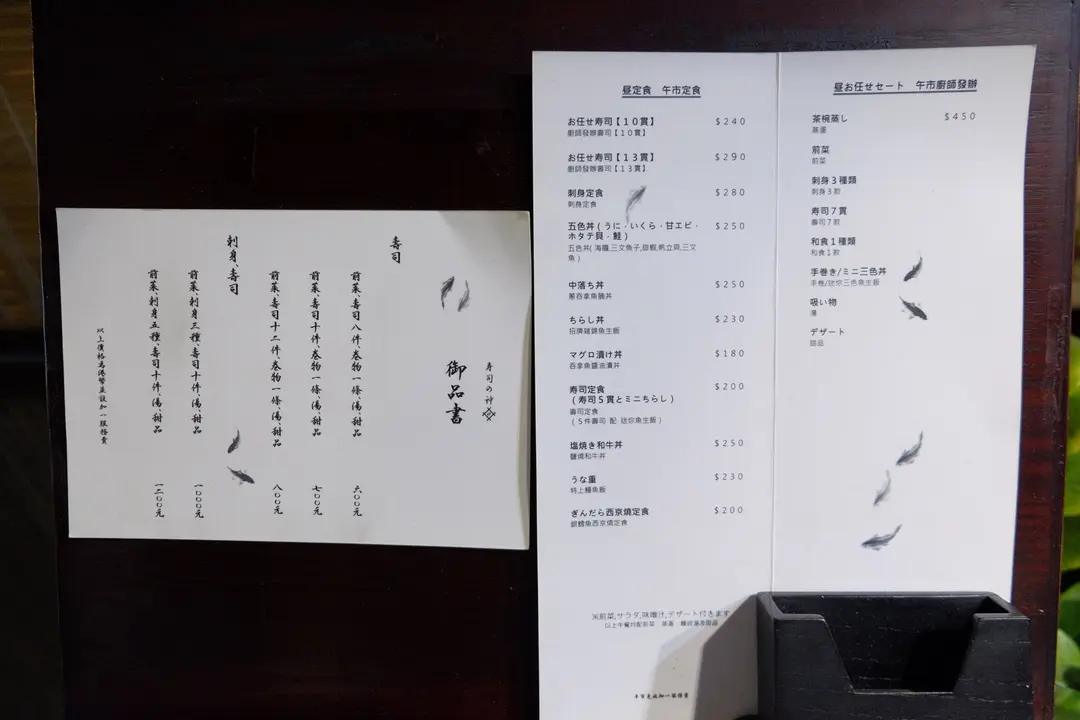 寿司の神
御品書
壽司
前菜、壽司八件、巻物一條、湯、甜品 六〇〇元
前菜、壽司十件、巻物一條、湯、甜品 七〇〇元
前菜、壽司十二件、巻物一條、湯、甜品 八〇〇元
刺身、壽司
前菜、刺身三種、壽司十件、湯、甜品 一〇〇〇元
前菜、刺身五種、壽司十件、湯、甜品 一二〇〇元
以上價格為港幣並設加一服務費
昼定食 午市定食
お任せ寿司【10貫】 $240
廚師發辦壽司【10貫】
お任せ寿司【13貫】 $290
廚師發辦壽司【13貫】
刺身定食 $280
刺身定食
五色丼(うに・いくら・甘エビ・ $250
ホタテ貝・鮭)
五色丼(海膽,三文魚子,甜蝦,帆立貝,三文
魚)
中落ち丼 $250
蔥吞拿魚腩丼
ちらし丼 $230
招牌雜錦魚生飯
マグロ漬け丼 $180
吞拿魚醬油漬丼
寿司定食 $200
(寿司5貫とミニちらし)
壽司定食
(5件壽司 配 迷你魚生飯)
塩焼き和牛丼 $250
鹽燒和牛丼
うな重 $230
特上鰻魚飯
ぎんだら西京燒定食 $200
銀鱈魚西京燒定食
米前菜,サラダ,味噌汁,デザート付きます
以上午餐均配前菜 蒸蛋 麵豉湯及甜品
昼お任せセート 午市廚師發辦
茶椀蒸し $450
蒸蛋
前菜
前菜
刺身3種類
刺身3款
寿司7貫
壽司7款
和食1種類
和食1款
手巻き/ミニ三色丼
手卷/迷你三色魚生飯
吸い物
湯
デザート
甜品